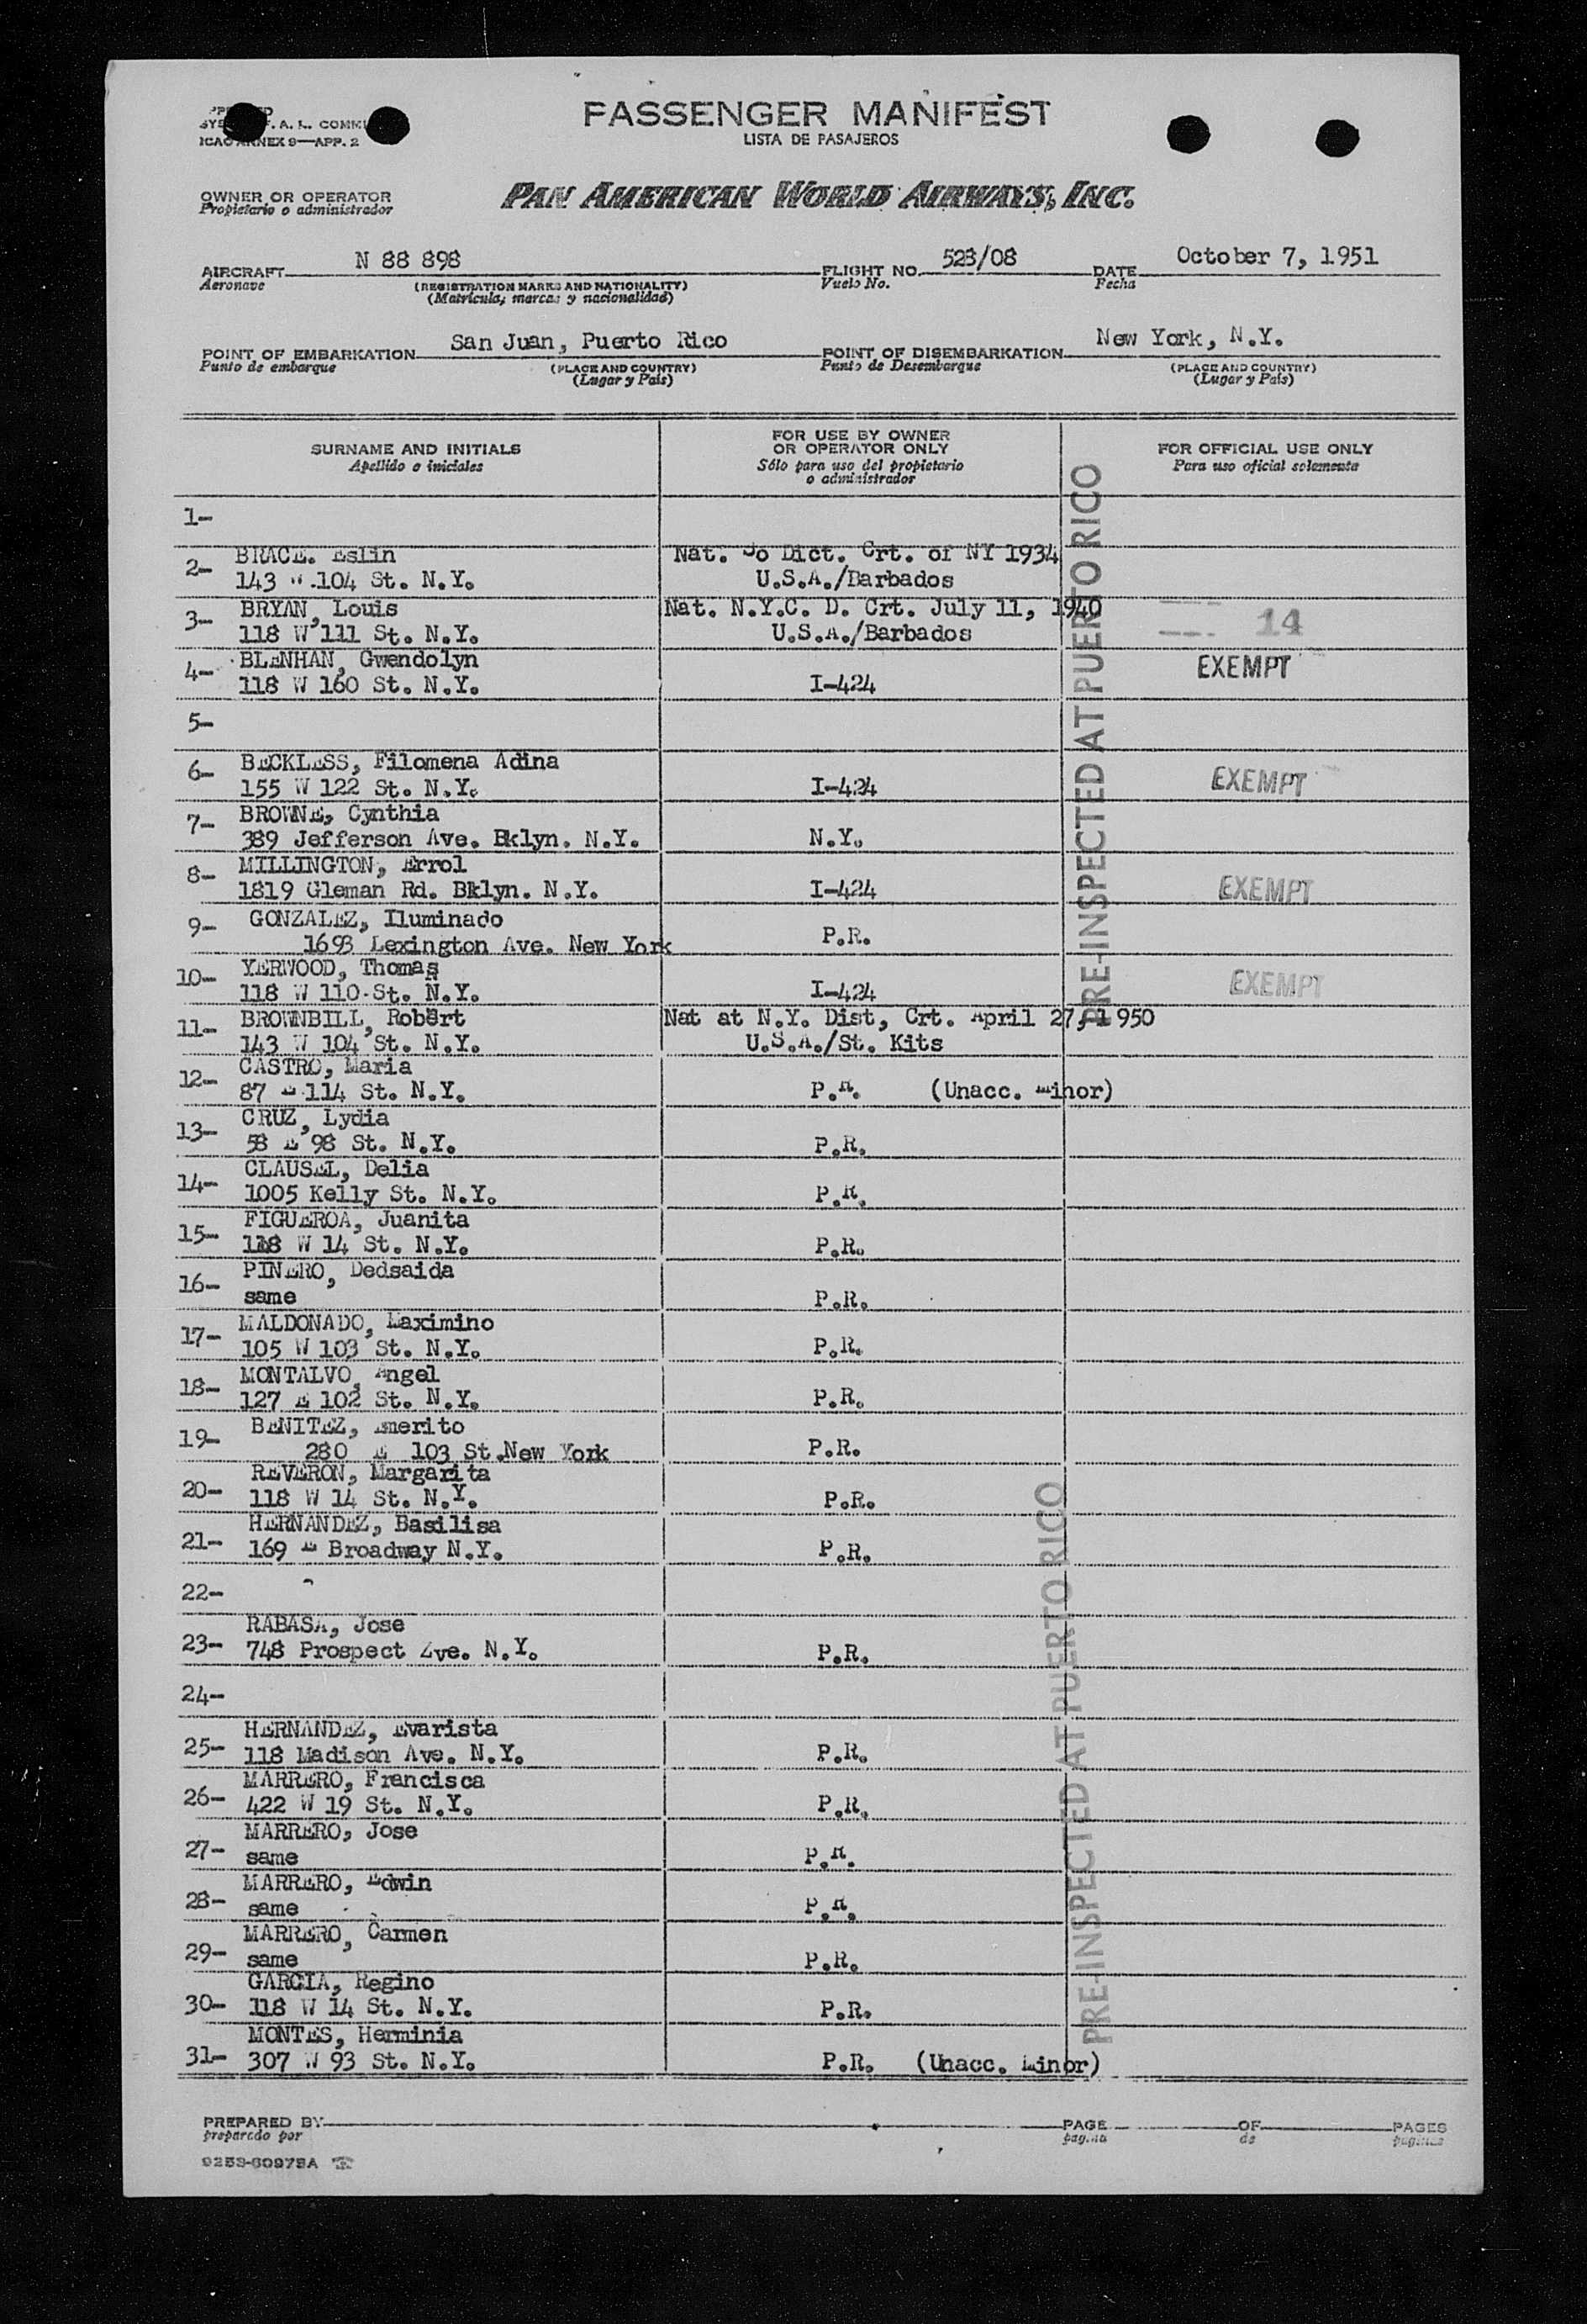 PASSENGER MANIFEST
LISTA DE PASAJEROS
ICAO ANNEX 9—APP. 2
OWNER OR OPERATOR
Propietario o administrador
PAN AMERICAN WORLD AIRWAYS, INC.
AIRCRAFT N 88 898 FLIGHT NO. 523/08 DATE October 7, 1951
Aeronave (REGISTRATION MARKS AND NATIONALITY) Vuelo No. Fecha
(Matrícula, marcas y nacionalidad)
POINT OF EMBARKATION San Juan, Puerto Rico POINT OF DISEMBARKATION New York, N.Y.
Punto de embarque (PLACE AND COUNTRY) Punto de Desembarque (PLACE AND COUNTRY)
(Lugar y País) (Lugar y País)
SURNAME AND INITIALS FOR USE BY OWNER OR OPERATOR ONLY FOR OFFICIAL USE ONLY
Apellido o iniciales Sólo para uso del propietario o administrador Para uso oficial solemente
PRE-INSPECTED AT PUERTO RICO
1-
2- BRACE. Eslin Nat. Dict. Crt. of NY 1934
143 W 104 St. N.Y. U.S.A./Barbados
3- BRYAN, Louis Nat. N.Y.C. D. Crt. July 11, 1940
118 W 111 St. N.Y. U.S.A./Barbados 14
4- BLENHAN, Gwendolyn EXEMPT
118 W 160 St. N.Y. I-424
5-
6- BECKLESS, Filomena Adina EXEMPT
155 W 122 St. N.Y. I-424
7- BROWNE, Cynthia
389 Jefferson Ave. Bklyn. N.Y. N.Y.
8- MILLINGTON, Errol
1819 Gleman Rd. Bklyn. N.Y. I-424 EXEMPT
9- GONZALEZ, Iluminado
1693 Lexington Ave. New York P.R.
10- YERWOOD, Thomas
118 W 110 St. N.Y. I-424 EXEMPT
11- BROWNBILL, Robert Nat at N.Y. Dist, Crt. April 27, 1950
143 W 104 St. N.Y. U.S.A./St. Kits
12- CASTRO, Maria
87 E 114 St. N.Y. P.R. (Unacc. Minor)
13- CRUZ, Lydia
58 E 98 St. N.Y. P.R.
14- CLAUSEL, Delia
1005 Kelly St. N.Y. P.R.
15- FIGUEROA, Juanita
118 W 14 St. N.Y. P.R.
16- PINERO, Dedsaida
same P.R.
17- MALDONADO, Maximino
105 W 103 St. N.Y. P.R.
18- MONTALVO, Angel
127 E 102 St. N.Y. P.R.
19- BENITEZ, Emerito
280 E 103 St.New York P.R.
20- REVERON, Margarita
118 W 14 St. N.Y. P.R.
21- HERNANDEZ, Basilisa
169 E Broadway N.Y. P.R.
22-
23- RABASA, Jose
748 Prospect Ave. N.Y. P.R.
24-
25- HERNANDEZ, Evarista
118 Madison Ave. N.Y. P.R.
26- MARRERO, Francisca
422 W 19 St. N.Y. P.R.
27- MARRERO, Jose
same P.R.
28- MARRERO, Edwin
same P.R.
29- MARRERO, Carmen
same P.R.
30- GARCIA, Regino
118 W 14 St. N.Y. P.R.
31- MONTES, Herminia
307 W 93 St. N.Y. P.R. (Unacc. Minor)
PRE-INSPECTED AT PUERTO RICO
PREPARED BY PAGE OF PAGES
preparado por pagina de paginas
9253-60973A